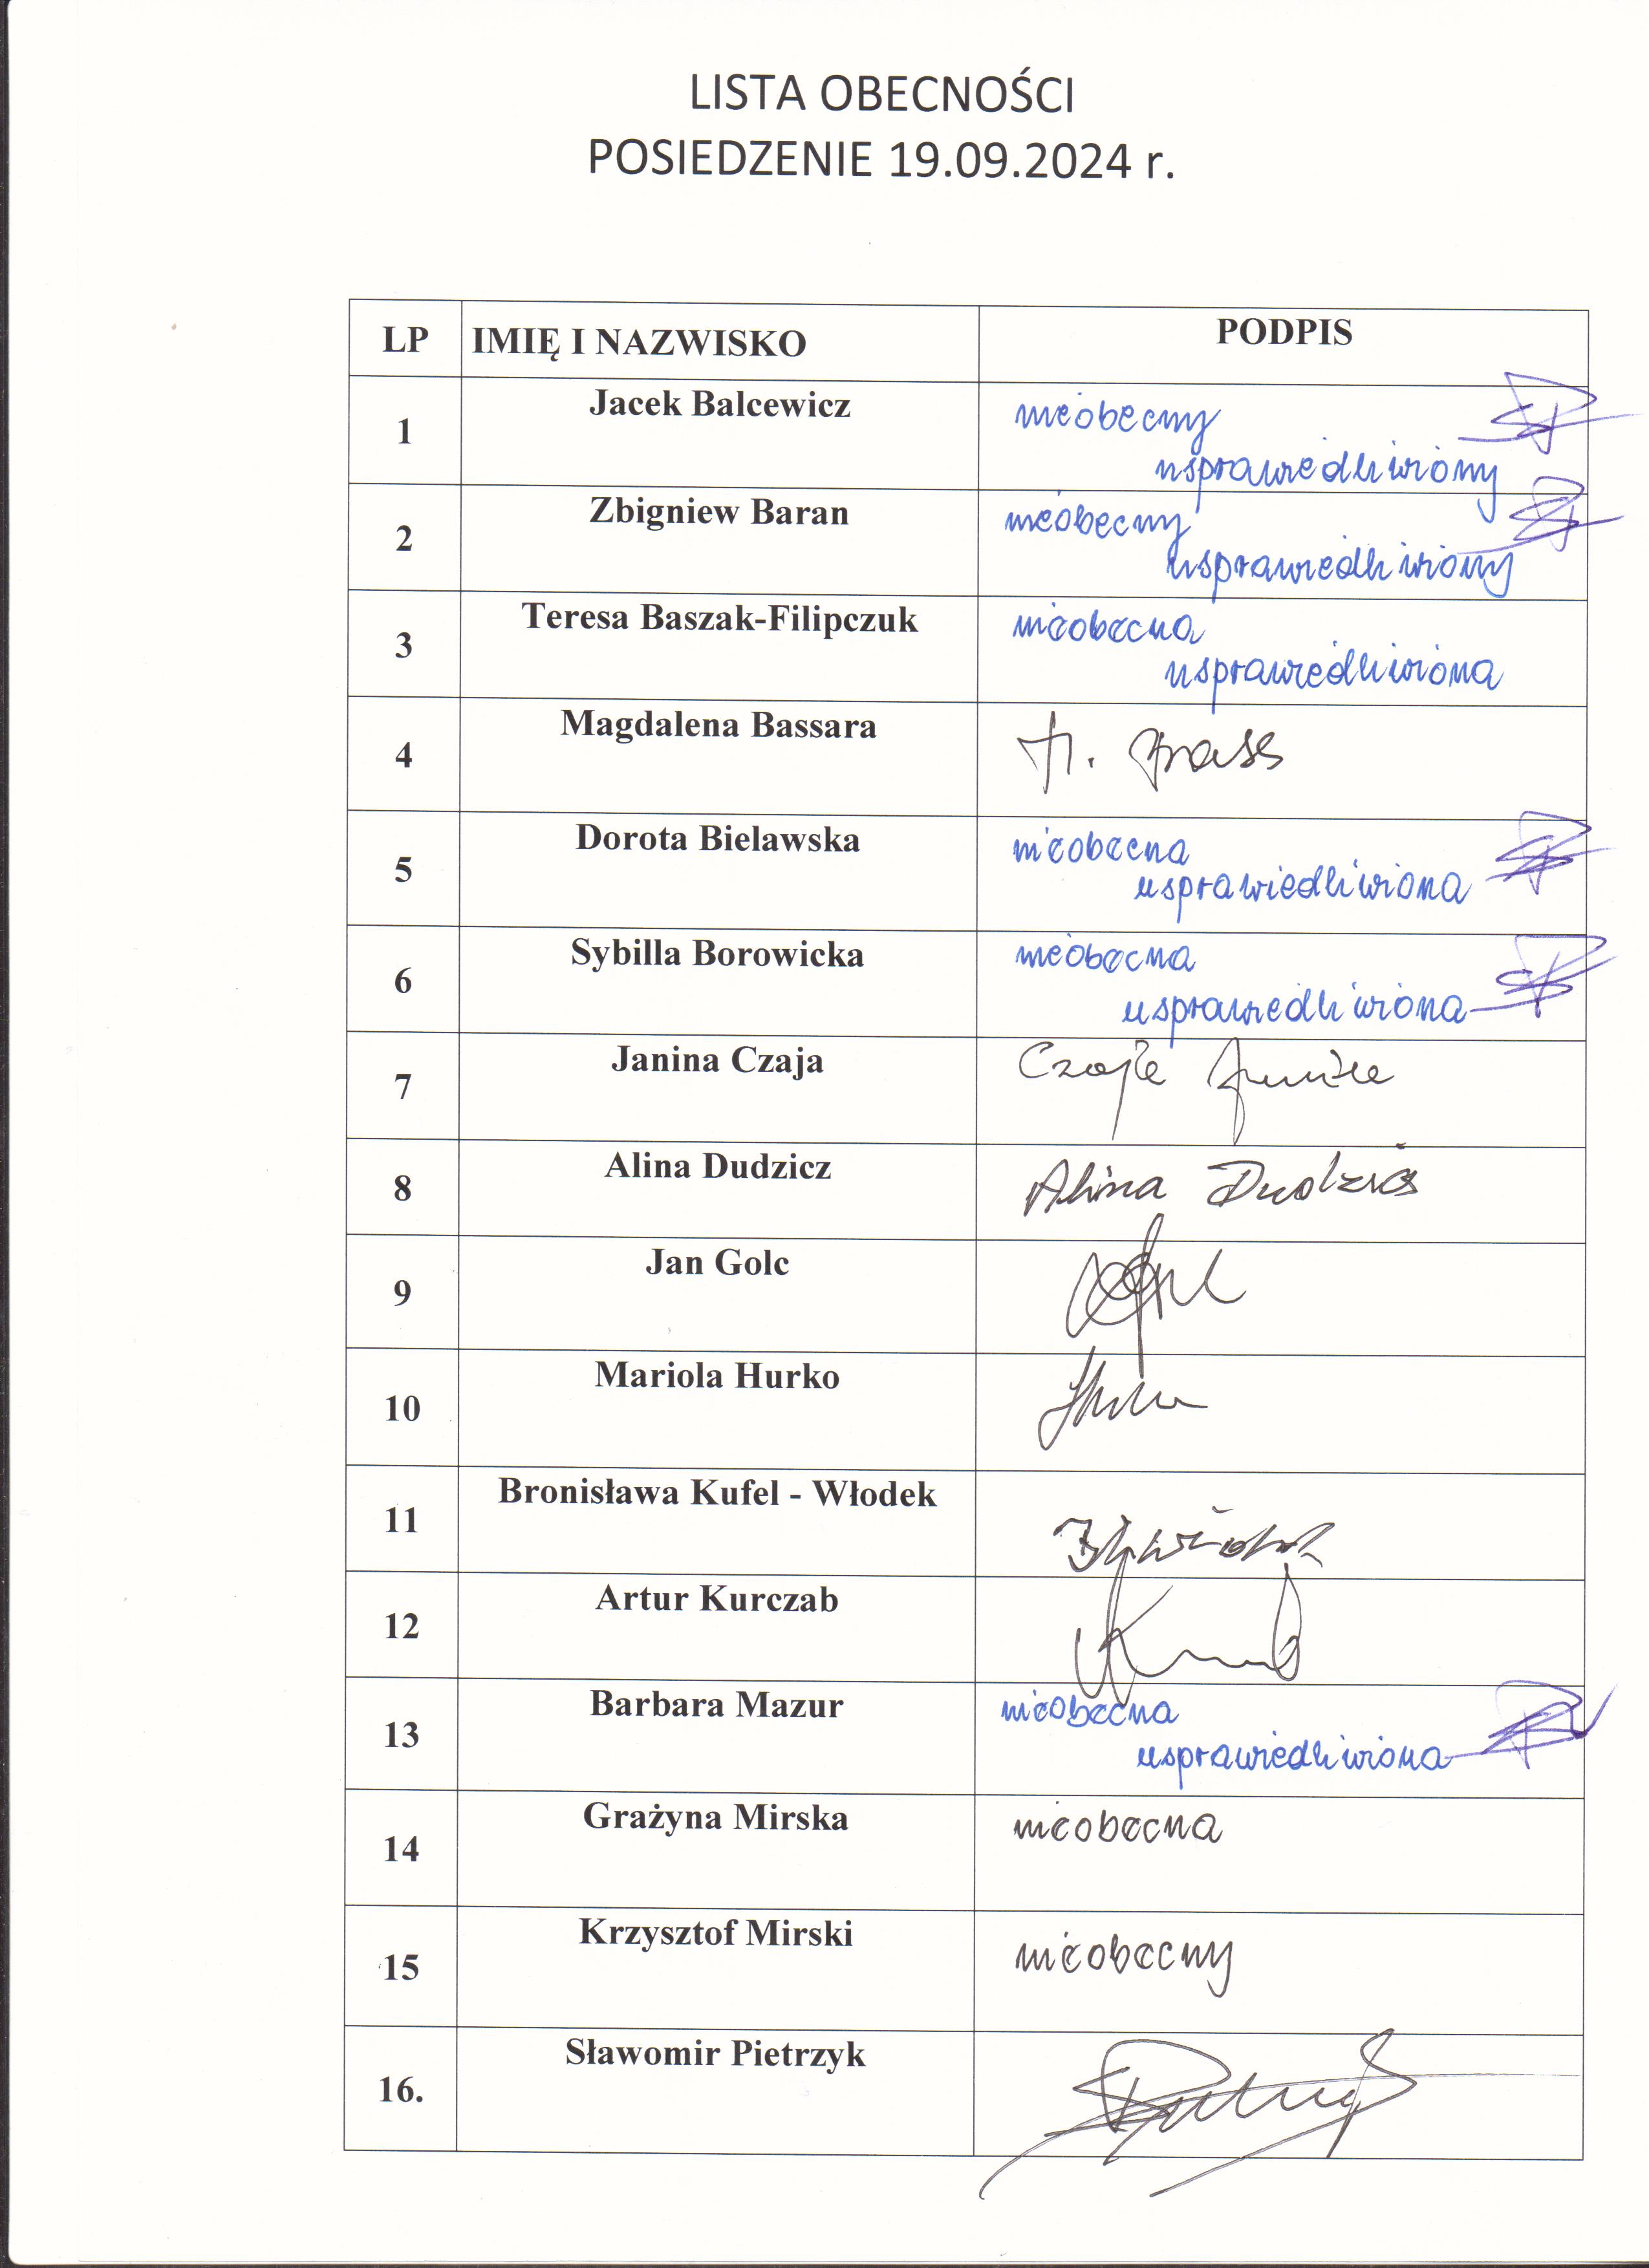 LISTA OBECNOŚCI
POSIEDZENIE 19.09.2024 r.
LP IMIĘ I NAZWISKO PODPIS
1 Jacek Balcewicz nieobecny
usprawiedliwiony
2 Zbigniew Baran nieobecny
usprawiedliwiony
3 Teresa Baszak-Filipczuk nieobecna
usprawiedliwiona
4 Magdalena Bassara
5 Dorota Bielawska nieobecna
usprawiedliwiona
6 Sybilla Borowicka nieobecna
usprawiedliwiona
7 Janina Czaja Czaja Janina
8 Alina Dudzicz Alina Dudzicz
9 Jan Golc
10 Mariola Hurko
11 Bronisława Kufel - Włodek
12 Artur Kurczab
13 Barbara Mazur nieobecna
usprawiedliwiona
14 Grażyna Mirska nieobecna
15 Krzysztof Mirski nieobecny
16. Sławomir Pietrzyk